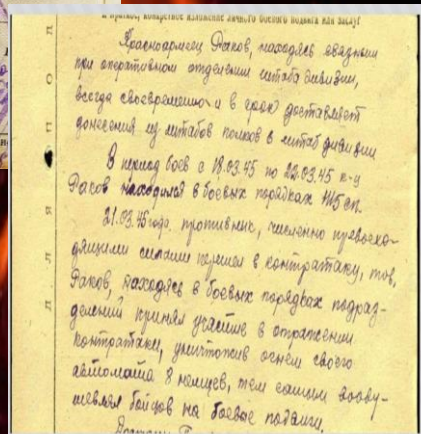 и краткое, конкретное изложение личного боевого подвига или заслуг
Красноармеец Раков, находясь связным
при оперативном отделении штаба дивизии,
всегда своевременно и в срок доставляет
донесения из штабов полков в штаб дивизии
В период боев с 18.03.45 по 22.03.45 к-ц
Раков находился в боевых порядках сп.
21.03.45 года противник, численно превосхо-
дящими силами перешел в контратаку, тов.
Раков, находясь в боевых порядках подраз-
делений принял участие в отражении
контратаки, уничтожив огнем своего
автомата 8 немцев, тем самым вооду-
шевлял бойцов на боевые подвиги.